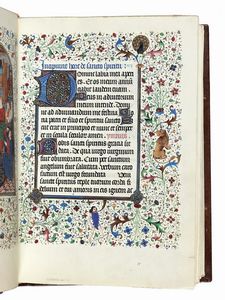 Incipiunt hore de sancto spiritu
Domine labia mea aperi
es. Et os meum annun
ciabit laudem tuam.
Deus in adiutorium
meum intende. Domi
ne ad adiuvandum me festina. Glo
ria patri et filio et spiritui sancto Si
cut erat in principio et nunc et semper
et in secula seculorum amen. ymnus
Nobis sancti spiritus gratia sit
data. De qua virgo virginum
fuit obumbrata. Cum per sanctum
angelum fuit salutata. Verbum caro
factum est virgo fecundata.
sancte spiritus reple tuorum corda fi
delium et tui amoris in eis ignem ac